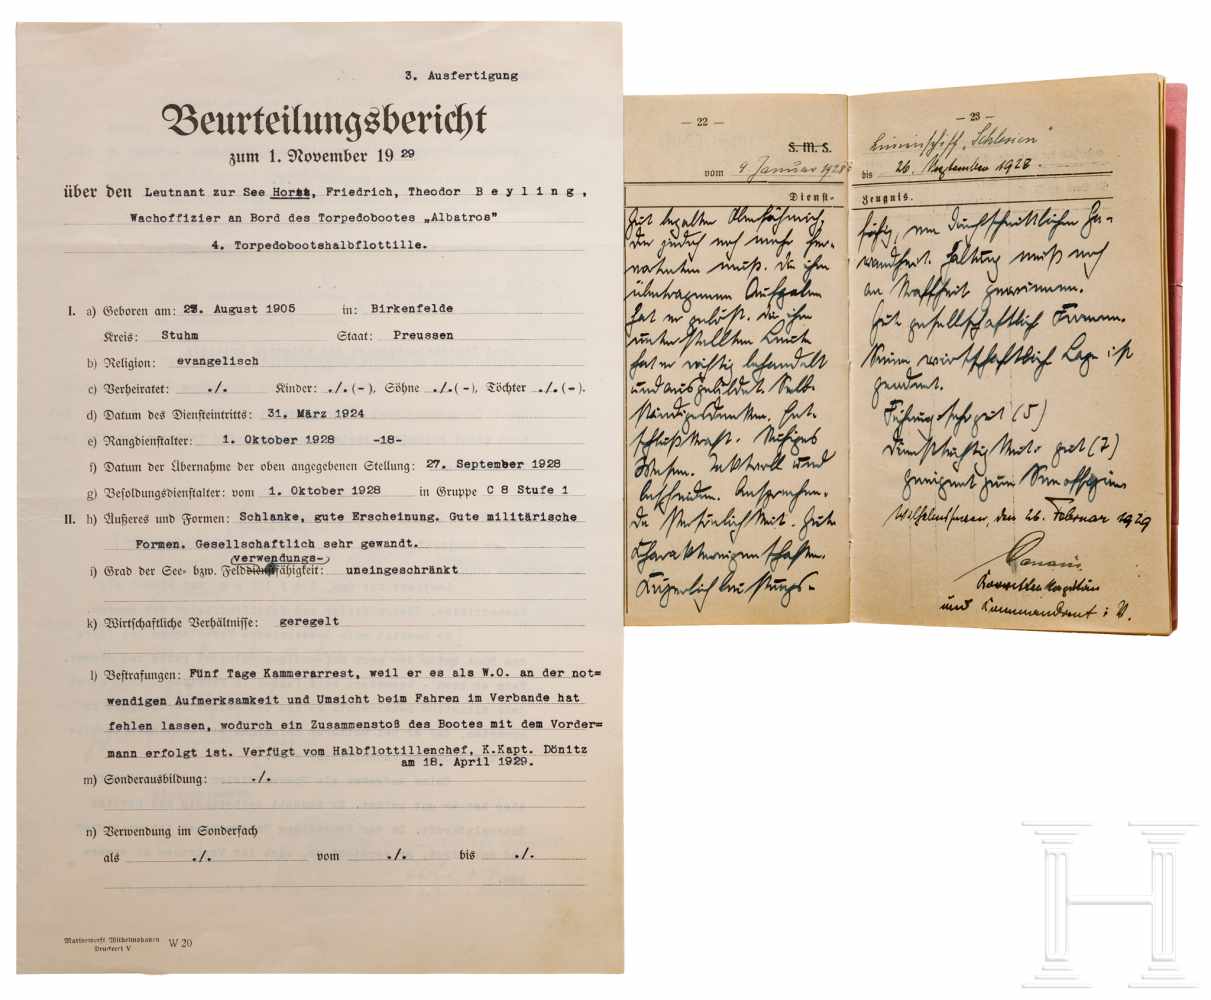 3. Ausfertigung
Beurteilungsbericht
zum 1. November 19 29
über den Leutnant zur See Horst, Friedrich, Theodor B e y l i n g ,
Wachoffizier an Bord des Torpedobootes „Albatros”
4. Torpedobootshalbflottille.
I. a) Geboren am: 27. August 1905 in: Birkenfelde
Kreis: Stuhm Staat: Preussen
b) Religion: evangelisch
c) Verheiratet: ./. Kinder: ./.(-), Söhne ./.(-), Töchter ./.(-).
d) Datum des Diensteintritts: 31. März 1924
e) Rangdienstalter: 1. Oktober 1928 -18-
f) Datum der Übernahme der oben angegebenen Stellung: 27. September 1928
g) Besoldungsdienstalter: vom 1. Oktober 1928 in Gruppe C 8 Stufe 1
II. h) Äußeres und Formen: Schlanke, gute Erscheinung. Gute militärische
Formen. Gesellschaftlich sehr gewandt.
verwendungs-
i) Grad der See- bzw. Felddienstfähigkeit: uneingeschränkt
k) Wirtschaftliche Verhältnisse: geregelt
l) Bestrafungen: Fünf Tage Kammerarrest, weil er es als W.O. an der not=
wendigen Aufmerksamkeit und Umsicht beim Fahren im Verbande hat
fehlen lassen, wodurch ein Zusammenstoß des Bootes mit dem Vorder=
mann erfolgt ist. Verfügt vom Halbflottillenchef, K.Kapt. Dönitz
am 18. April 1929.
m) Sonderausbildung: ./.
n) Verwendung im Sonderfach
als ./. vom ./. bis ./.
Marinewerft Wilhelmshaven
Druckerei V
W 20
— 22 —
S. M. S.
vom 9 Januar 1928
Dienst-
Gut begabter Oberfähnrich,
der jedoch noch mehr her-
austreten muß. Die ihm
übertragenen Aufgaben
hat er gelöst. Die ihm
unterstellten Leute
hat er richtig behandelt
und ausgebildet. Selb-
ständiges Denken. Ent-
schlußkraft. Ruhiges
Wesen. Taktvoll und
bescheiden. Ansprechen-
de Persönlichkeit. Gute
Charaktereigenschaften.
Körperlich leistungs-
— 23 —
Linienschiff „Schlesien"
bis 26. September 1928
Zeugnis.
fähig, von durchschnittlicher Ge-
wandtheit. Haltung muß noch
an Straffheit gewinnen.
Gut gesellschaftlich Formen.
Seine wirtschaftliche Lage ist
geordnet.
Führung: sehr gut (5)
Diensttüchtigkeit: gut (7)
Geeignet zum Seeoffizier
Wilhelmshaven, den 26. Februar 1929
Canaris.
Korvettenkapitän
und Kommandant i. V.
H